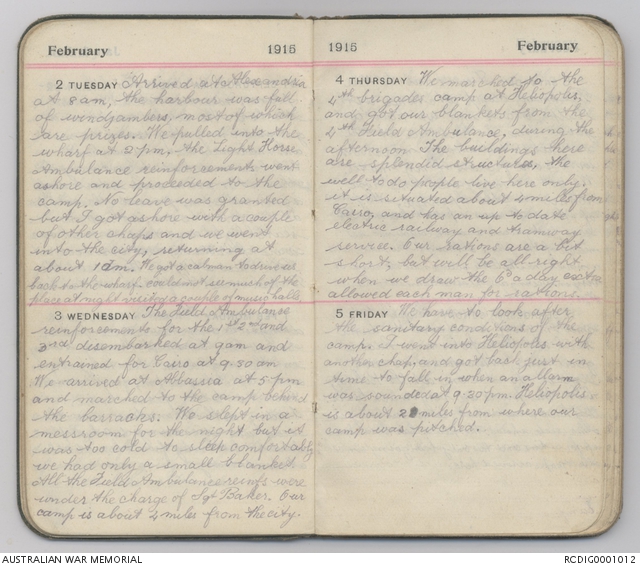 February 1915
2 TUESDAY Arrived at Alexandria
at 8am, the harbour was full
of windjambers, most of which
are prizes. We pulled into the
wharf at 2 p.m. the Light Horse
Ambulance reinforcements went
ashore and proceeded to the
camp. No leave was granted
but I got ashore with a couple
of other chaps and we went
into the city, returning at
about 1am. We got a cabman to drive us
back to the wharf. could not see much of the
place at night visited a couple of music halls
3 WEDNESDAY The Field Ambulance
reinforcements for the 1st 2nd and
3rd desembarked at 9am and
entrained for Cairo at 9.30 am
We arrived at Abbassia at 5 pm
and marched to the camp behind
the barracks. We slept in a
messroom for the night but it
was too cold to sleep comfortably
we had only a small blanket
All the Field Ambulance reinfs were
under the charge of Sgt Baker. Our
camp is about miles from the city.
1915 February
4 THURSDAY We marched to the
4th brigades camp at Heliopolis.
and got our blankets from the
4th Field Ambulance, during the
afternoon The buildings here
are splendid structures, the
well to do people live here only.
it is situated about 5 miles from
Cairo, and has an up to date
electric railway and tramway
service. Our rations are a bit
short, but will be all right
when we draw the 6d a day extra
allowed each man for rations.
5 FRIDAY We have to look after
the sanitary conditions of the
camp. I went into Heliopolis with
another chap, and got back just in
time to fall in when an allarm
was sounded at 9.20 pm. Heliopolis
is about 2 miles from where our
camp was pitched.
AUSTRALIAN WAR MEMORIAL RCDIG0001012